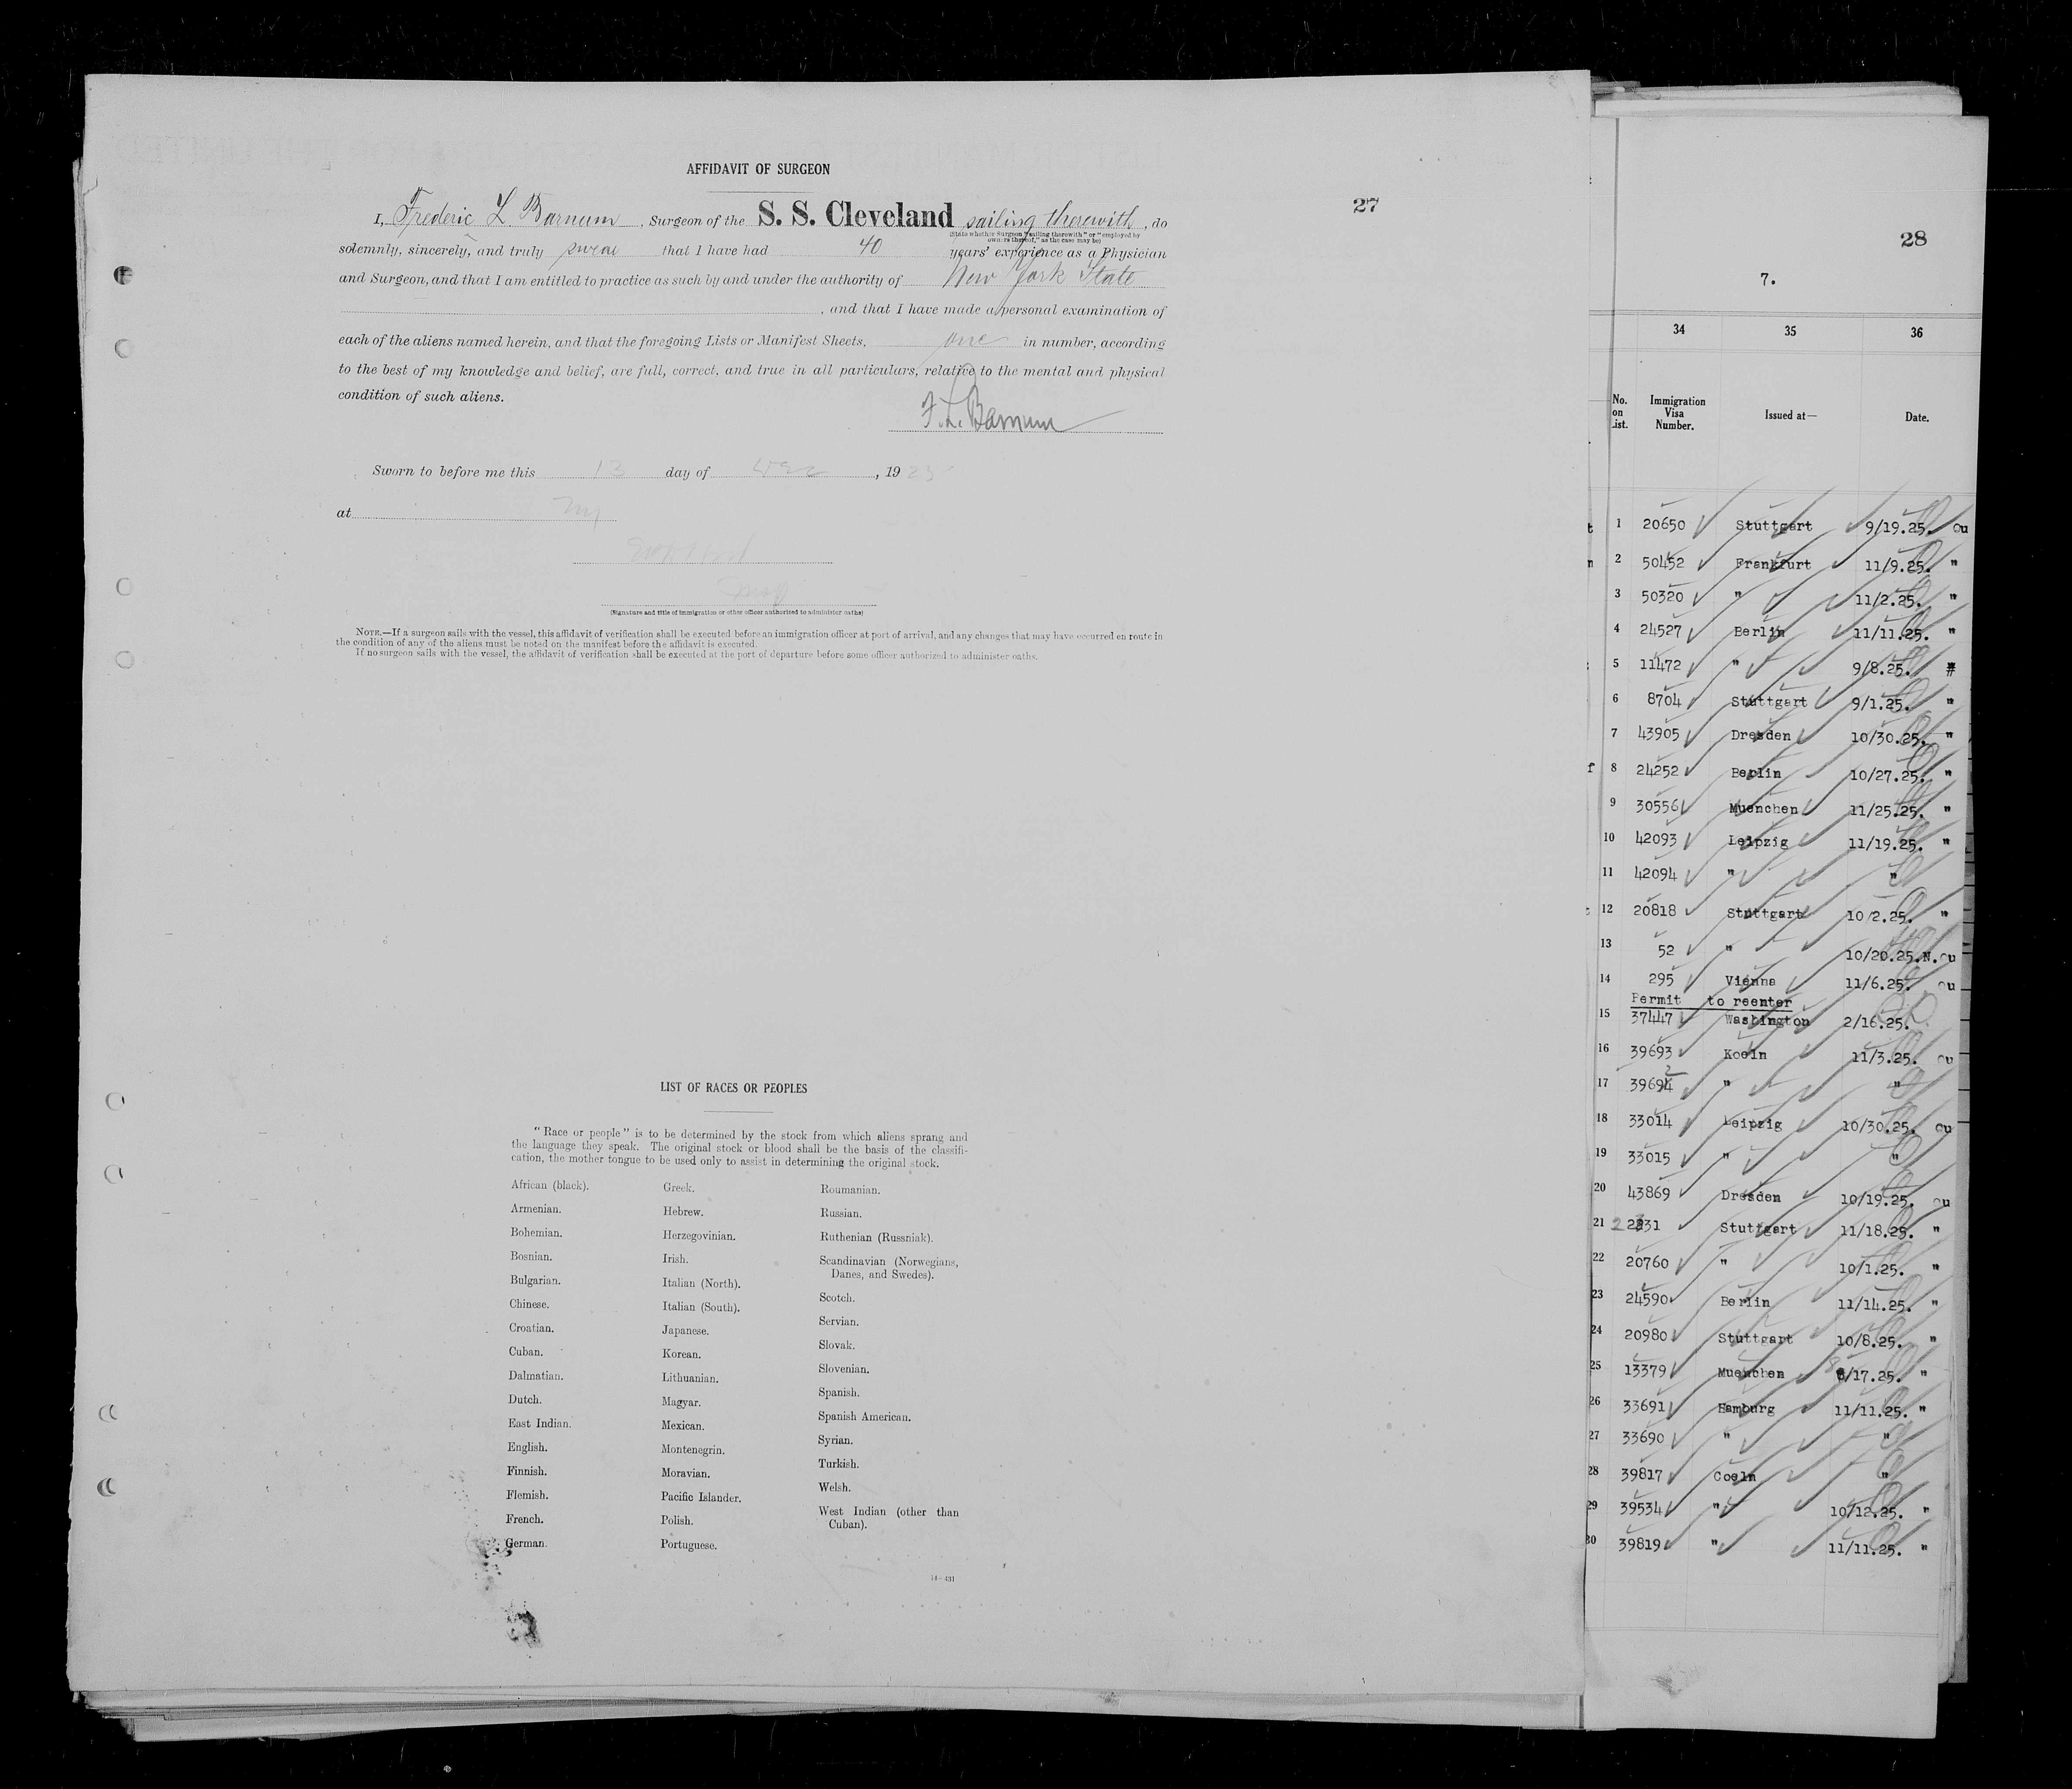 AFFIDAVIT OF SURGEON
27
I, Frederic L Barnum, Surgeon of the S. S. Cleveland sailing therewith, do
(State whether Surgeon "sailing therewith" or "employed by
owners thereof," as the case may be)
solemnly, sincerely, and truly swear that I have had 40 years' experience as a Physician
and Surgeon, and that I am entitled to practice as such by and under the authority of New York State
, and that I have made a personal examination of
each of the aliens named herein, and that the foregoing Lists or Manifest Sheets, one in number, according
to the best of my knowledge and belief, are full, correct, and true in all particulars, relative to the mental and physical
condition of such aliens.
F. L. Barnum
Sworn to before me this 13 day of Dec, 19
at NY
(Signature and title of immigration or other officer authorized to administer oaths)
NOTE.—If a surgeon sails with the vessel, this affidavit of verification shall be executed before an immigration officer at port of arrival, and any changes that may have occurred en route in
the condition of any of the aliens must be noted on the manifest before the affidavit is executed.
If no surgeon sails with the vessel, the affidavit of verification shall be executed at the port of departure before some officer authorized to administer oaths.
LIST OF RACES OR PEOPLES
"Race or people" is to be determined by the stock from which aliens sprang and
the language they speak. The original stock or blood shall be the basis of the classifi-
cation, the mother tongue to be used only to assist in determining the original stock.
African (black).
Armenian.
Bohemian.
Bosnian.
Bulgarian.
Chinese.
Croatian.
Cuban.
Dalmatian.
Dutch.
East Indian.
English.
Finnish.
Flemish.
French.
German.
Greek.
Hebrew.
Herzegovinian.
Irish.
Italian (North).
Italian (South).
Japanese.
Korean.
Lithuanian.
Magyar.
Mexican.
Montenegrin.
Moravian.
Pacific Islander.
Polish.
Portuguese.
Roumanian.
Russian.
Ruthenian (Russniak).
Scandinavian (Norwegians,
Danes, and Swedes).
Scotch.
Servian.
Slovak.
Slovenian.
Spanish.
Spanish American.
Syrian.
Turkish.
Welsh.
West Indian (other than
Cuban).
14—431
28
7.
34 35 36
No. on List. Immigration Visa Number. Issued at— Date.
1 20650 Stuttgart 9/19.25. Qu
2 50452 Frankfurt 11/9.25. "
3 50320 " 11/2.25. "
4 24527 Berlin 11/11.25. "
5 11472 " 9/8.25. "
6 8704 Stuttgart 9/1.25. "
7 43905 Dresden 10/30.25. "
8 24252 Berlin 10/27.25. "
9 30556 Muenchen 11/25.25. "
10 42093 Leipzig 11/19.25. "
11 42094 " "
12 20818 Stuttgart 10/2.25. "
13 52 " 10/20.25.N.Qu
14 295 Vienna 11/6.25. Qu
Permit to reenter
15 37447 Washington 2/16.25.
16 39693 Koeln 11/3.25. Qu
17 39694 " "
18 33014 Leipzig 10/30.25. Qu
19 33015 " "
20 43869 Dresden 10/19.25. Qu
21 2231 Stuttgart 11/18.25. "
22 20760 " 10/1.25. "
23 24590 Berlin 11/14.25. "
24 20980 Stuttgart 10/8.25. "
25 13379 Muenchen 8/17.25. "
26 33691 Hamburg 11/11.25. "
27 33690 " "
28 39817 Coeln "
29 39534 " 10/12.25. "
30 39819 " 11/11.25. "